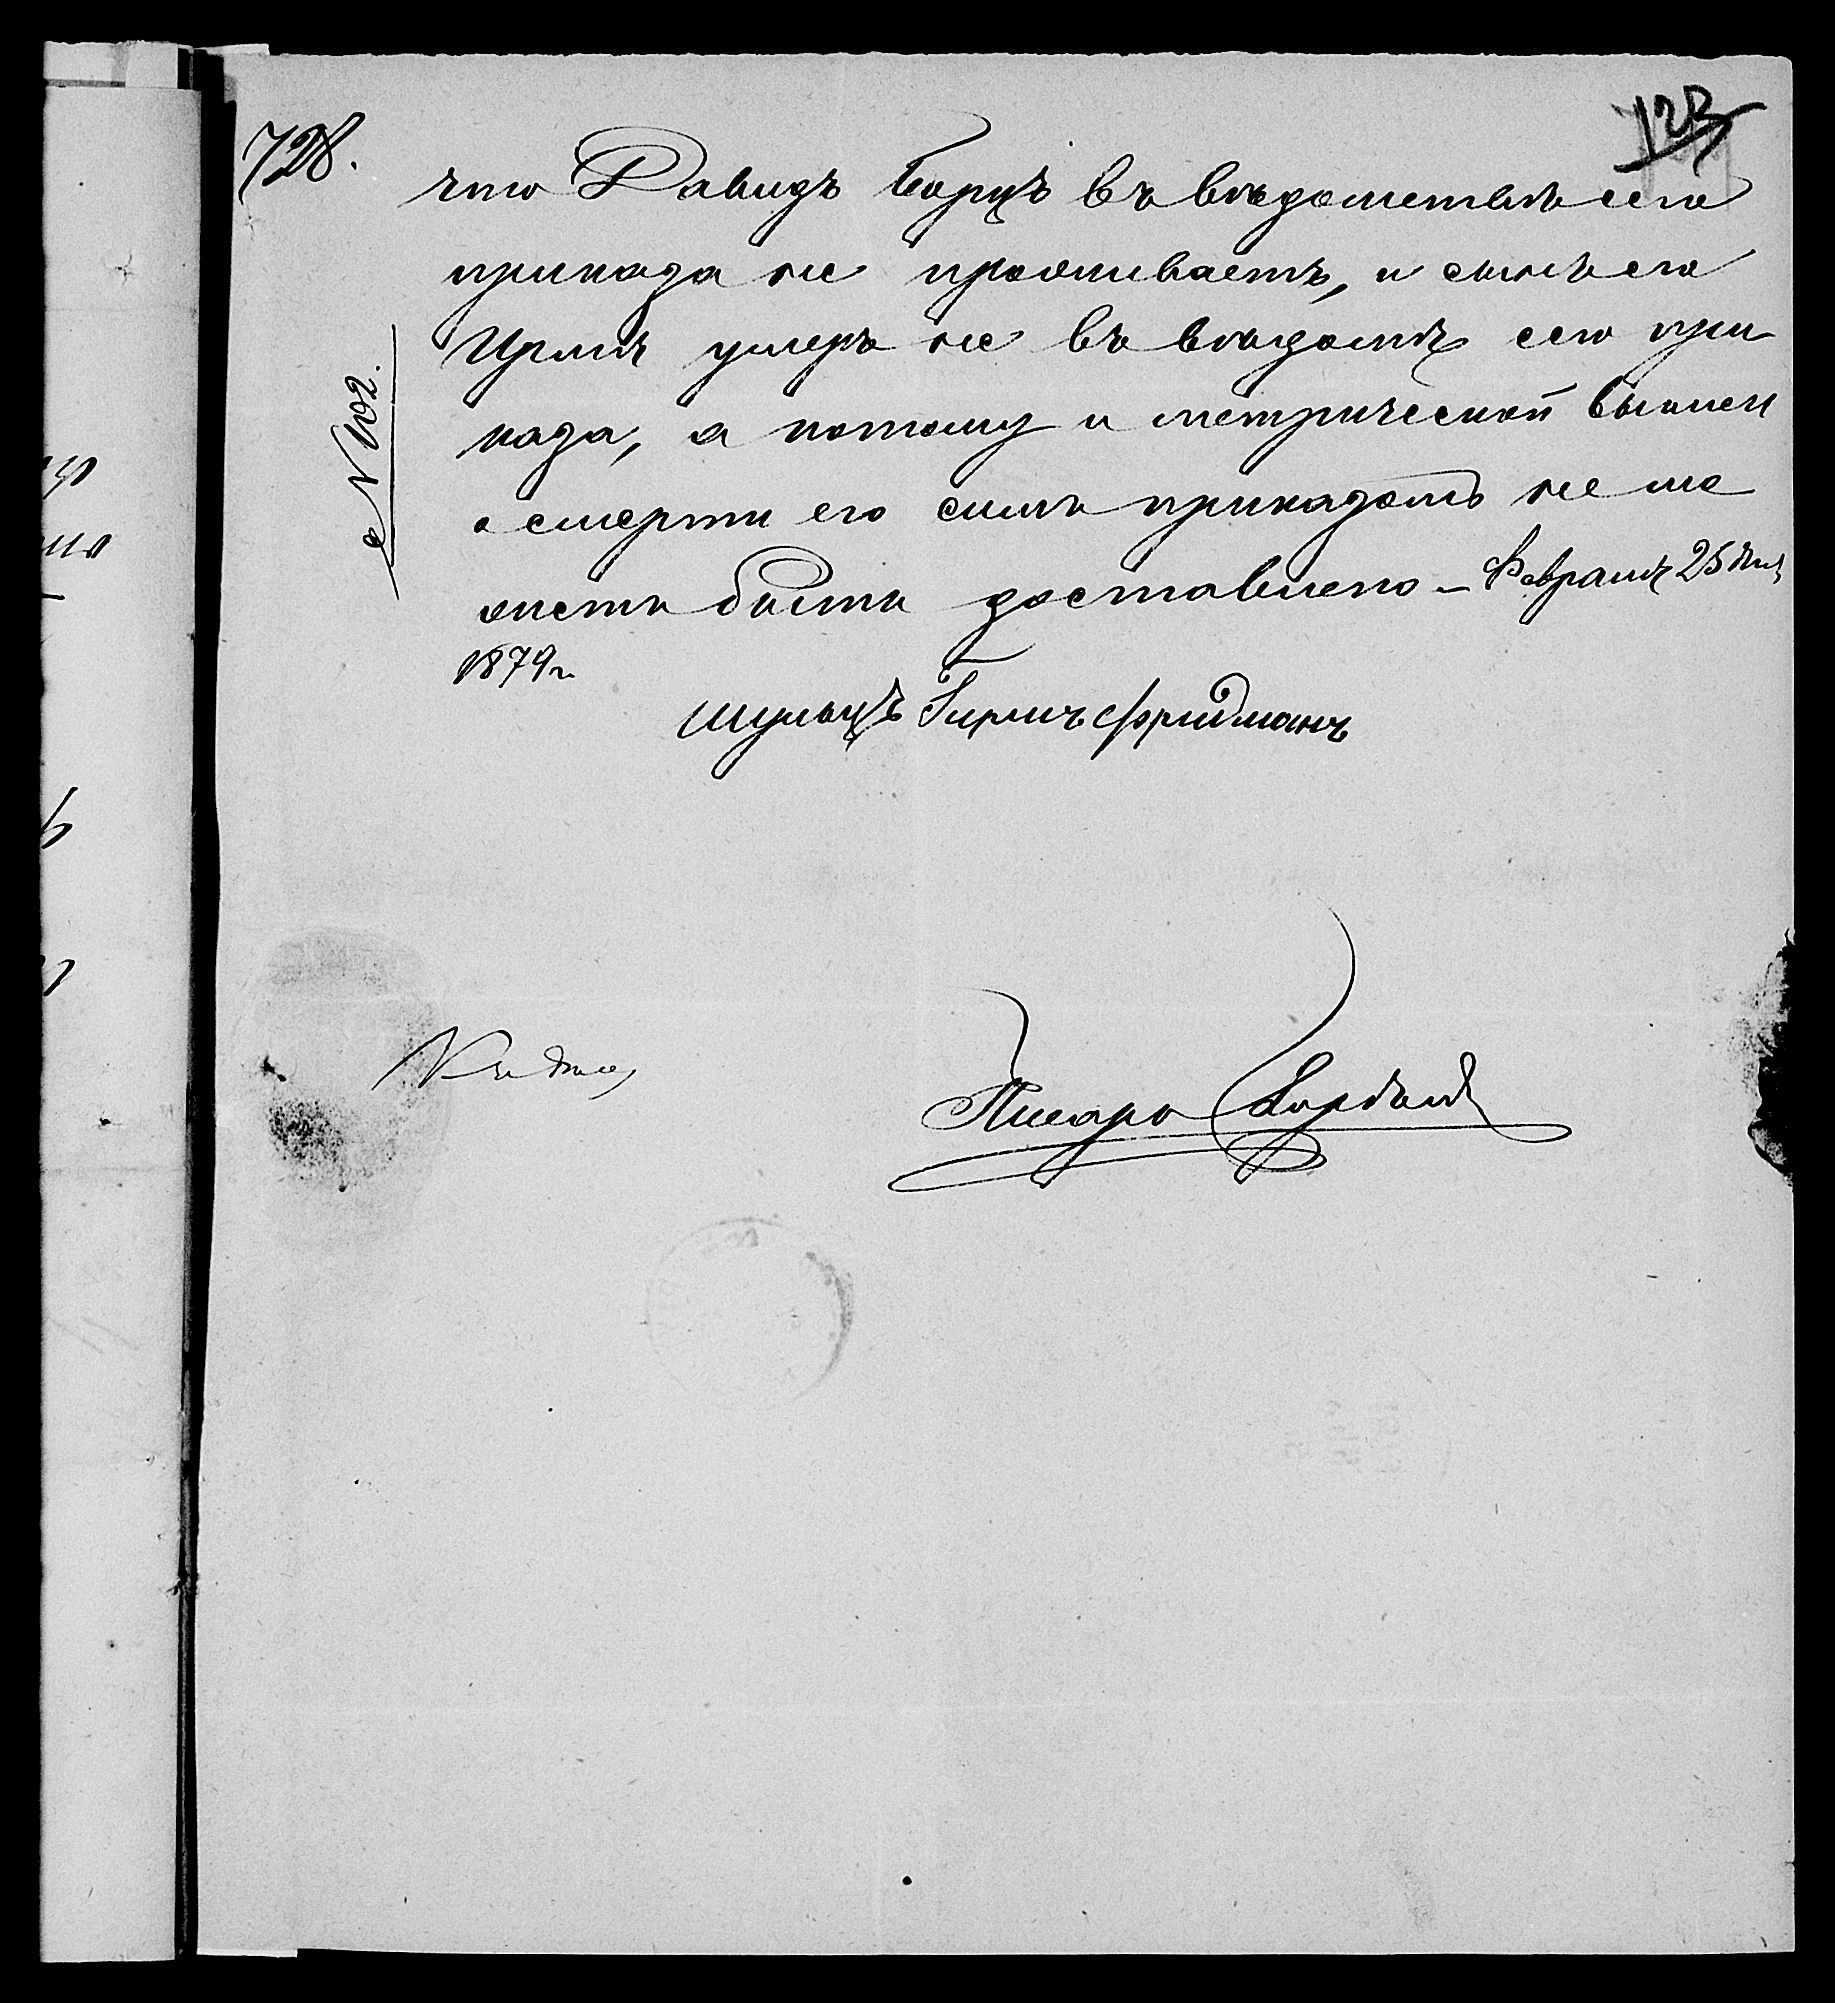 728.
123
что Давидъ Борцъ въ вѣдомствѣ сего
приказа не проживаетъ, и сынъ его
умеръ не въ вѣдомѣ сего при
каза, а потому и метрической выпис
о смерти его симъ приказомъ не мо
жетъ быть доставлено – Февраля 25 дня
1879 г.
№ 102.
Шульцъ Гиршъ Фридманъ
Писарь